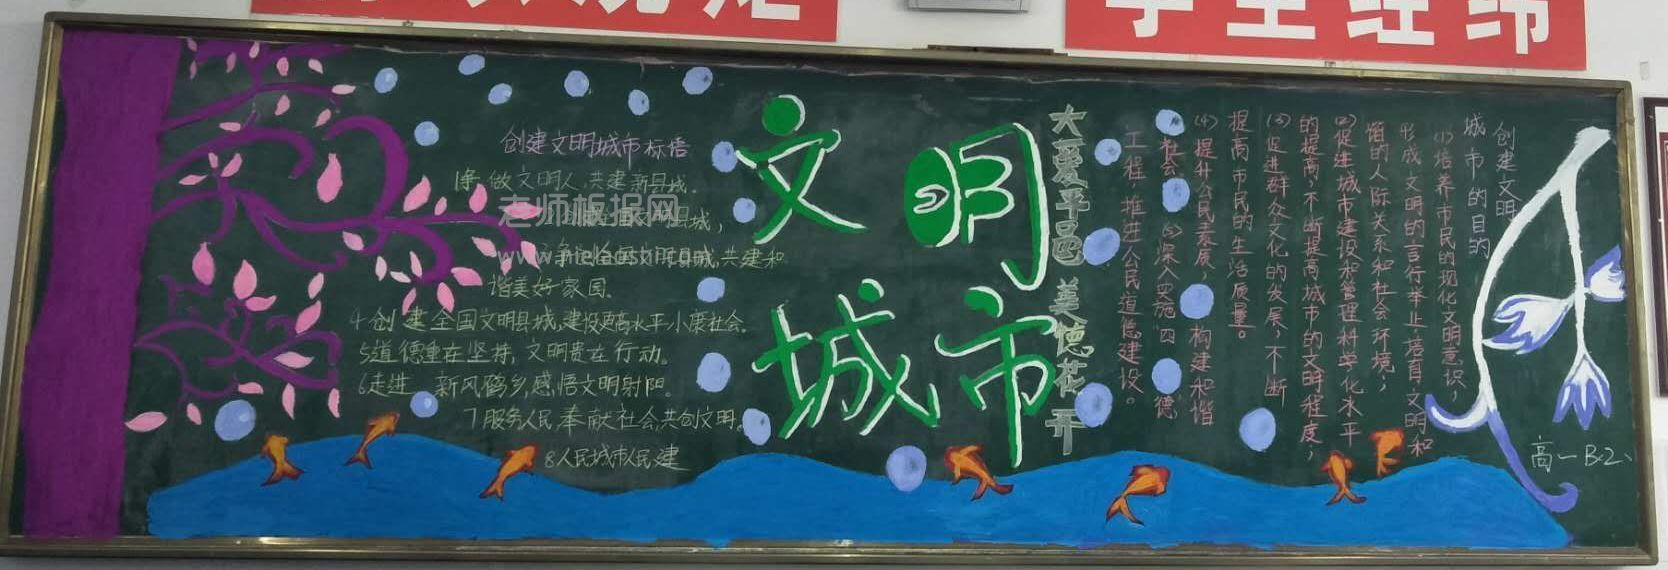 学生经纬
创建文明城市标语
做文明人,共建新县城。
老师板报网
共建和
谐美好家园。
4创建全国文明县城,建设更高水平小康社会。
5道德重在坚持,文明贵在行动。
6走进 新风鹤乡,感悟文明射阳。
7服务人民 奉献社会,共创文明。
8人民城市人民建
文明
城市
大爱平邑 美德花开
创建文明
城市的目的
(1)培养市民的现代文明意识,
形成文明的言行举止,培育文明和
谐的人际关系和社会环境;
(2)促进城市建设和管理科学化水平
的提高,不断提高城市的文明程度;
(3)促进群众文化的发展,不断
提高市民的生活质量。
(4)提升公民素质,构建和谐
社会。(5)深入实施“四德”
工程,推进公民道德建设。
高一B.2、